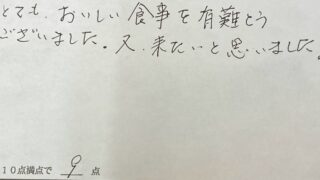 とても、おいしい食事を有難とう
ございました。又、来たいと思いました。
10点満点で 9 点